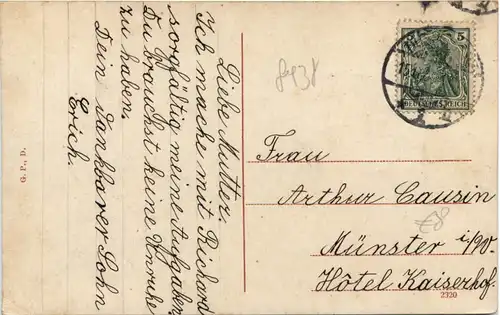 Liebe Mutter.
Ich mache mit Richard
sorgfältig meine Aufgaben
Du brauchst keine Unruhe
zu haben.
Dein dankbarer Sohn
Erich.
G. P., D.
5
DEUTSCHES REICH
Frau
Arthur Causin
Münster i/W.
Hôtel Kaiserhof.
2320